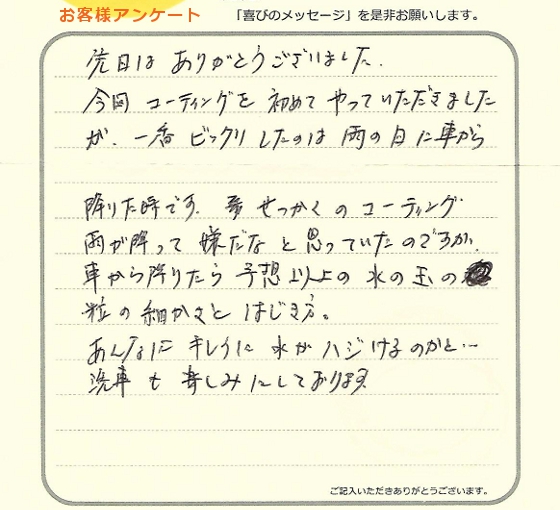 お客様アンケート 「喜びのメッセージ」を是非お願いします。
先日は ありがとうございました.
今回 コーティングを 初めて やっていただきました
が. 一番 ビックリ したのは 雨の日に車から
降りた時です. せっかくの コーティング
雨が降って 嫌だな と思っていたのですが.
車から降りたら 予想以上の 水の玉の
粒の細かさと はじき方。
あんなに キレイに 水が ハジけるのかと…
洗車も 楽しみにしております
ご記入いただきありがとうございます。